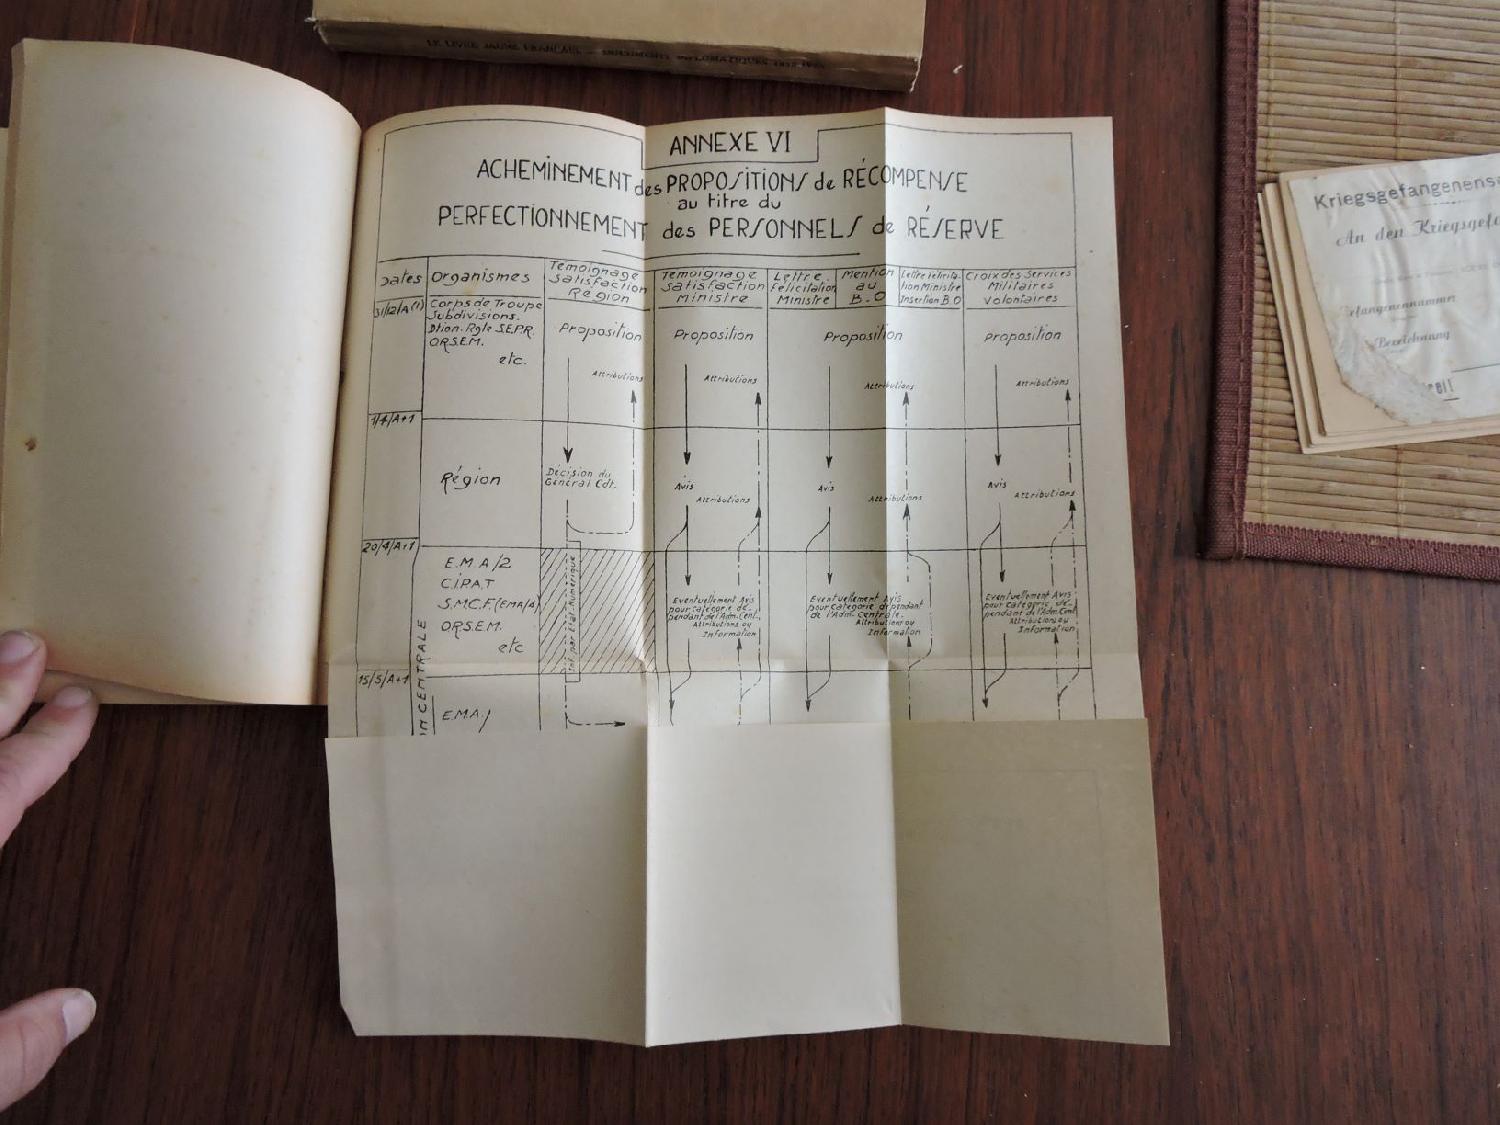 LE LIVRE JAUNE FRANÇAIS — DOCUMENTS DIPLOMATIQUES
ANNEXE VI
ACHEMINEMENT des PROPOSITIONS de RÉCOMPENSE
au titre du
PERFECTIONNEMENT des PERSONNELS de RÉSERVE
Dates
Organismes
Temoignage
Satisfaction
Région
Temoignage
Satisfaction
Ministre
Lettre
Félicitation
Ministre
Mention
au
B.O
Lettre Félicita-
tion Ministre
Insertion B O
Croix des Services
Militaires
Volontaires
31/12/A (1)
Corps de Troupe
Subdivisions.
Dtion. Rgle S.E.P.R.
O.R.S.E.M.
etc.
Proposition
Proposition
Proposition
Proposition
Attributions
Attributions
Attributions
Attributions
1/4/A+1
Région
Décision du
Général Cdt.
Avis
Avis
Avis
Attributions
Attributions
Attributions
20/4/A+1
E.M.A/2
C.I.P.A.T
S.M.C.F.(EMA/A)
O.R.S.E.M.
etc
Inf. par Etat Numérique
Eventuellement Avis
pour Categorie dé-
pendant de l'Adm. Cent.
Attributions ou
Information
Eventuellement Avis
pour Categorie dependant
de l'Adm. Centrale.
Attributions ou
Information
Eventuellement Avis
pour Categorie dé-
pendant de l'Adm. Cent
Attributions ou
Information
15/5/A+1
CENTRALE
E.M.A/
Kriegsgefangenens
An den Kriegsgefa
Gefangenennummer:
Bezeichnung